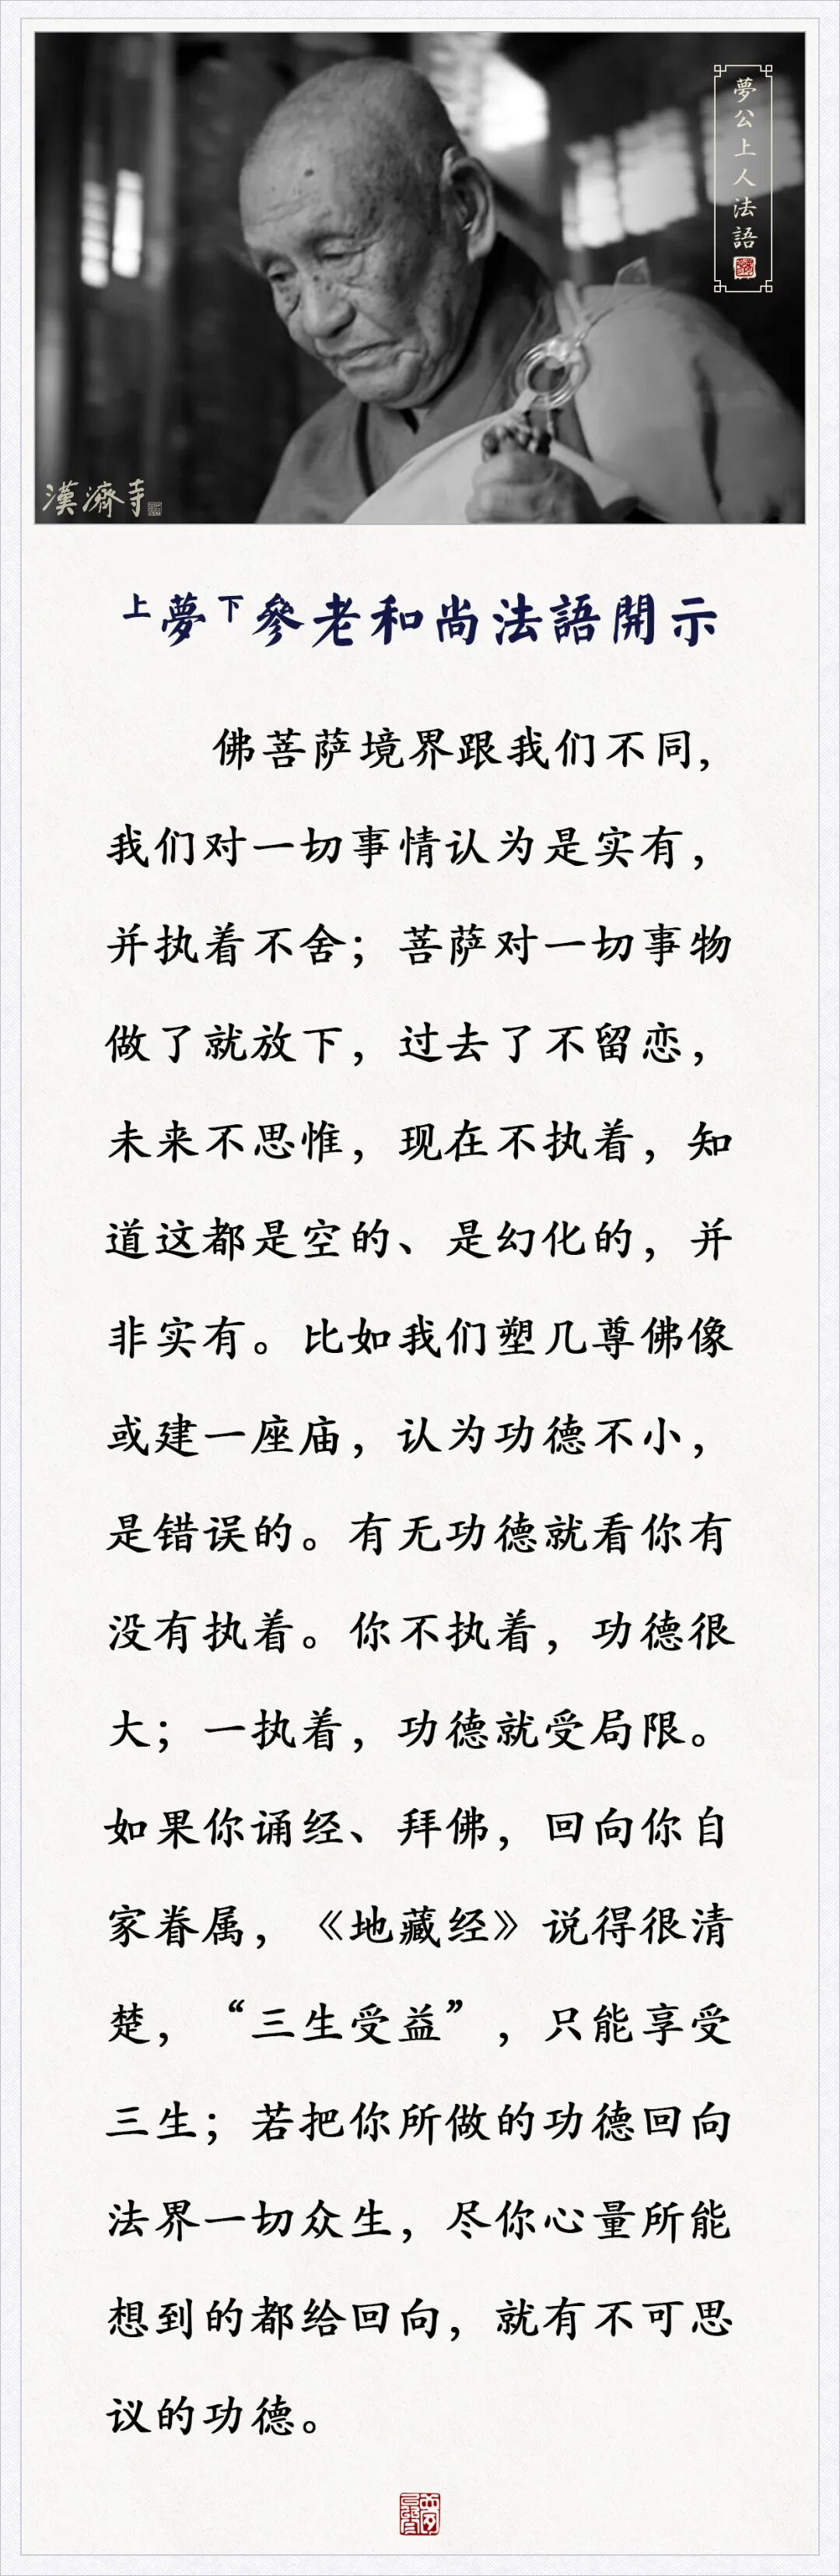 夢公上人法語
漢濟寺
上夢下參老和尚法語開示
佛菩萨境界跟我们不同,
我们对一切事情认为是实有，
并执着不舍；菩萨对一切事物
做了就放下，过去了不留恋，
未来不思惟，现在不执着，知
道这都是空的、是幻化的，并
非实有。比如我们塑几尊佛像
或建一座庙，认为功德不小，
是错误的。有无功德就看你有
没有执着。你不执着，功德很
大；一执着，功德就受局限。
如果你诵经、拜佛，回向你自
家眷属，《地藏经》说得很清
楚，“三生受益”，只能享受
三生；若把你所做的功德回向
法界一切众生，尽你心量所能
想到的都给回向，就有不可思
议的功德。